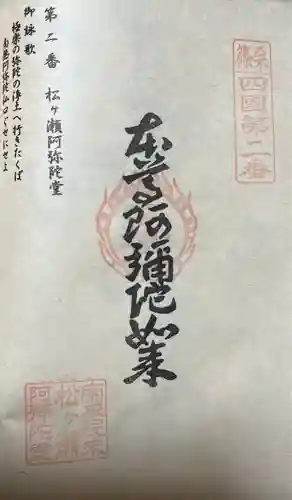 四國第二番
本尊阿彌陀如来
第二番 松ヶ瀬阿弥陀堂
御詠歌
極楽の弥陀の浄土へ行きたくば
南無阿弥陀仏口ぐせにせよ
松ヶ瀬
阿弥陀堂